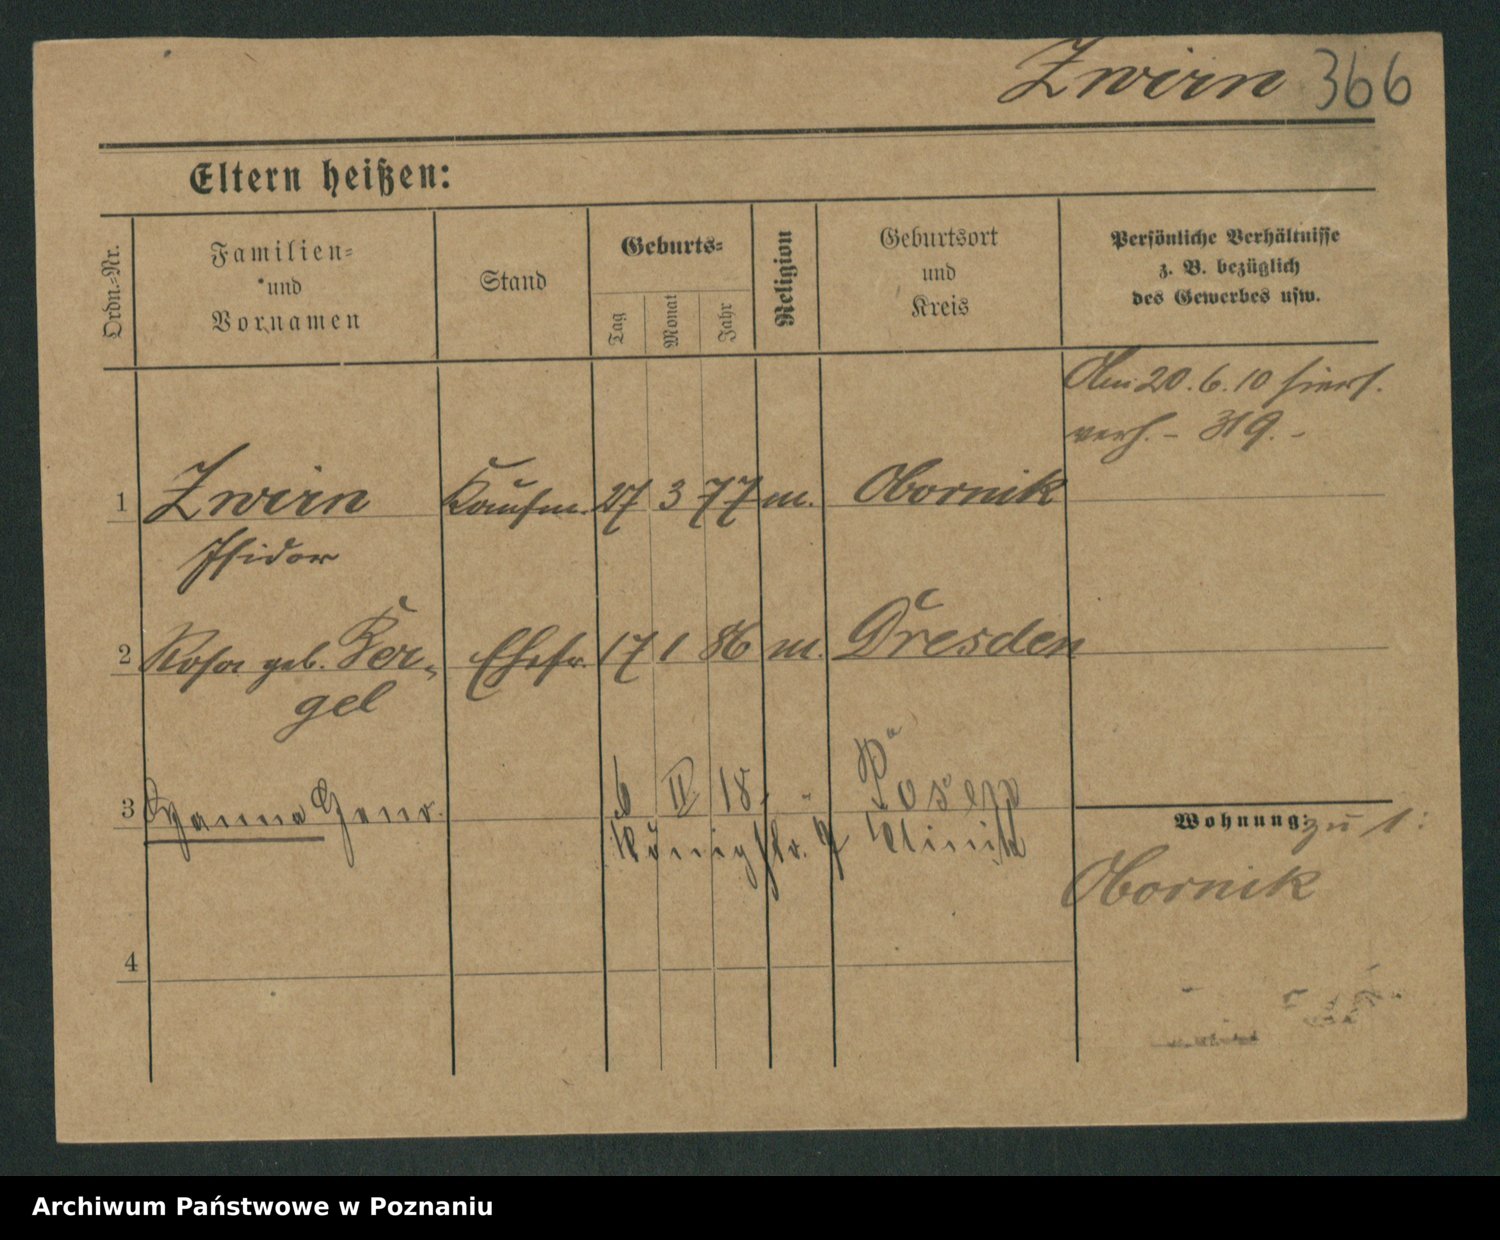 Zwirn 366
Eltern heißen:
Ordn.-Nr.
Familien-
und
Vornamen
Stand
Geburts-
Tag
Monat
Jahr
Religion
Geburtsort
und
Kreis
Persönliche Verhältnisse
z. B. bezüglich
des Gewerbes usw.
Am 20.6.10 hiers.
verh. – 319. –
1 Zwirn Kaufm. 27 3 77 m. Obornik
Isidor
2 Rosa geb. Ker- Ehefr. 17 1 86 m. Dresden
gel
3 Hanna 6 II 18. - Posen
Königstr. 9 Klinik
Wohnung: zu 1:
Obornik
4
Archiwum Państwowe w Poznaniu